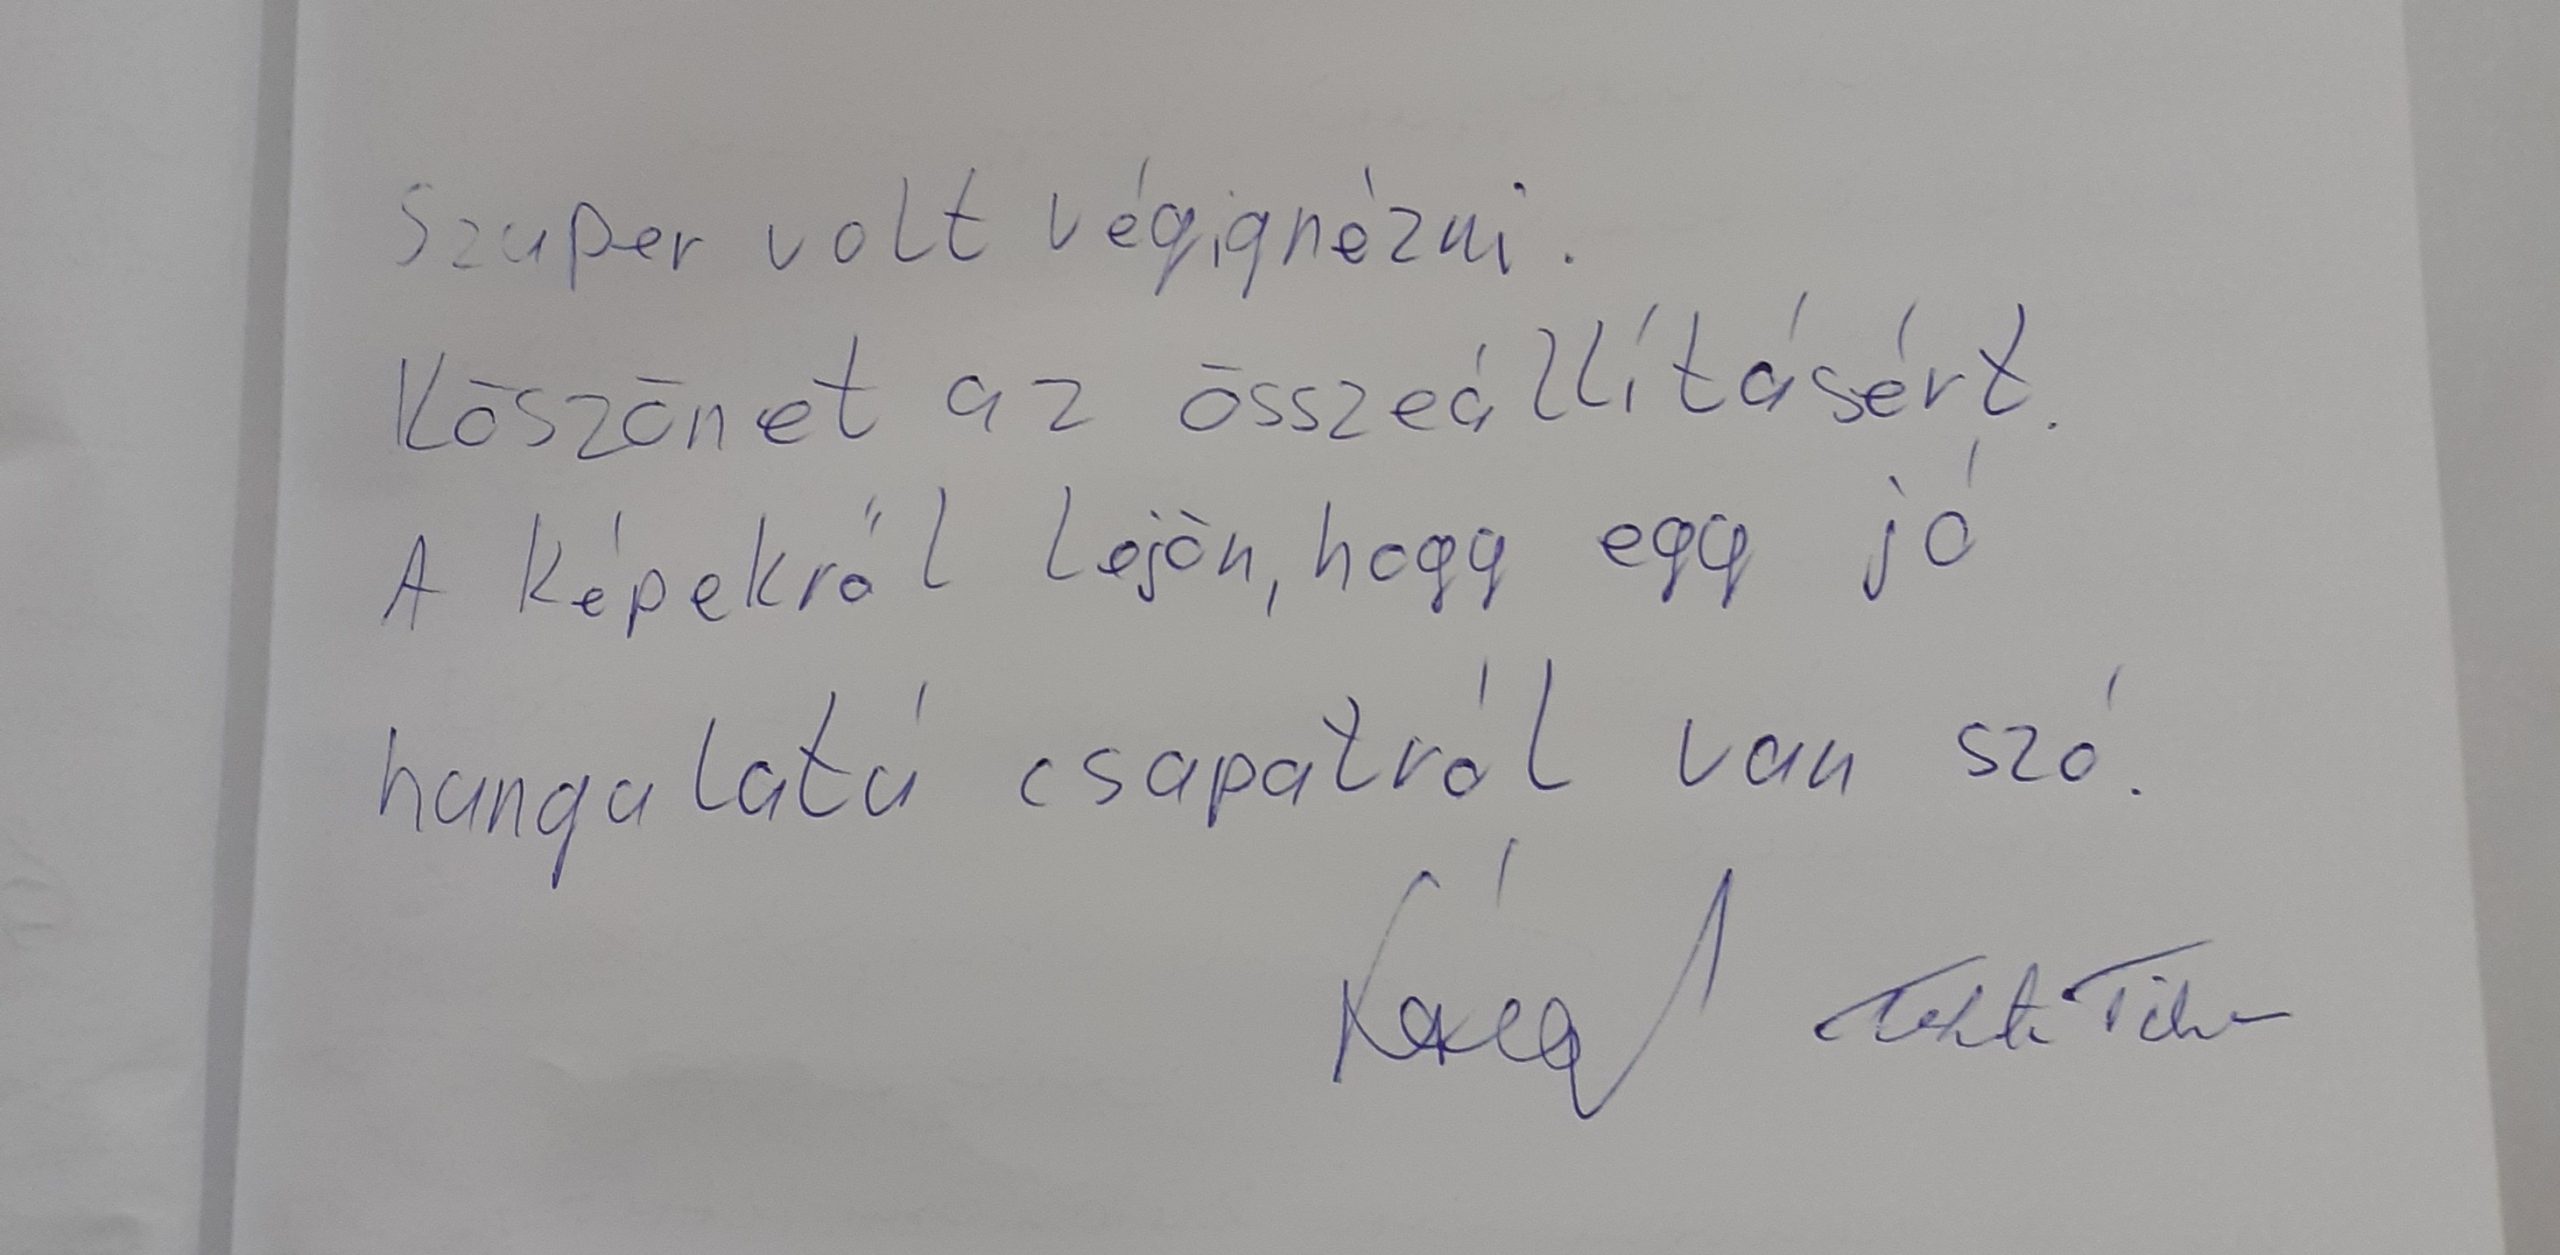 Szuper volt végignézni.
Köszönet az összeállításért.
A képekről lejön, hogy egy jó
hangulatú csapatról van szó.